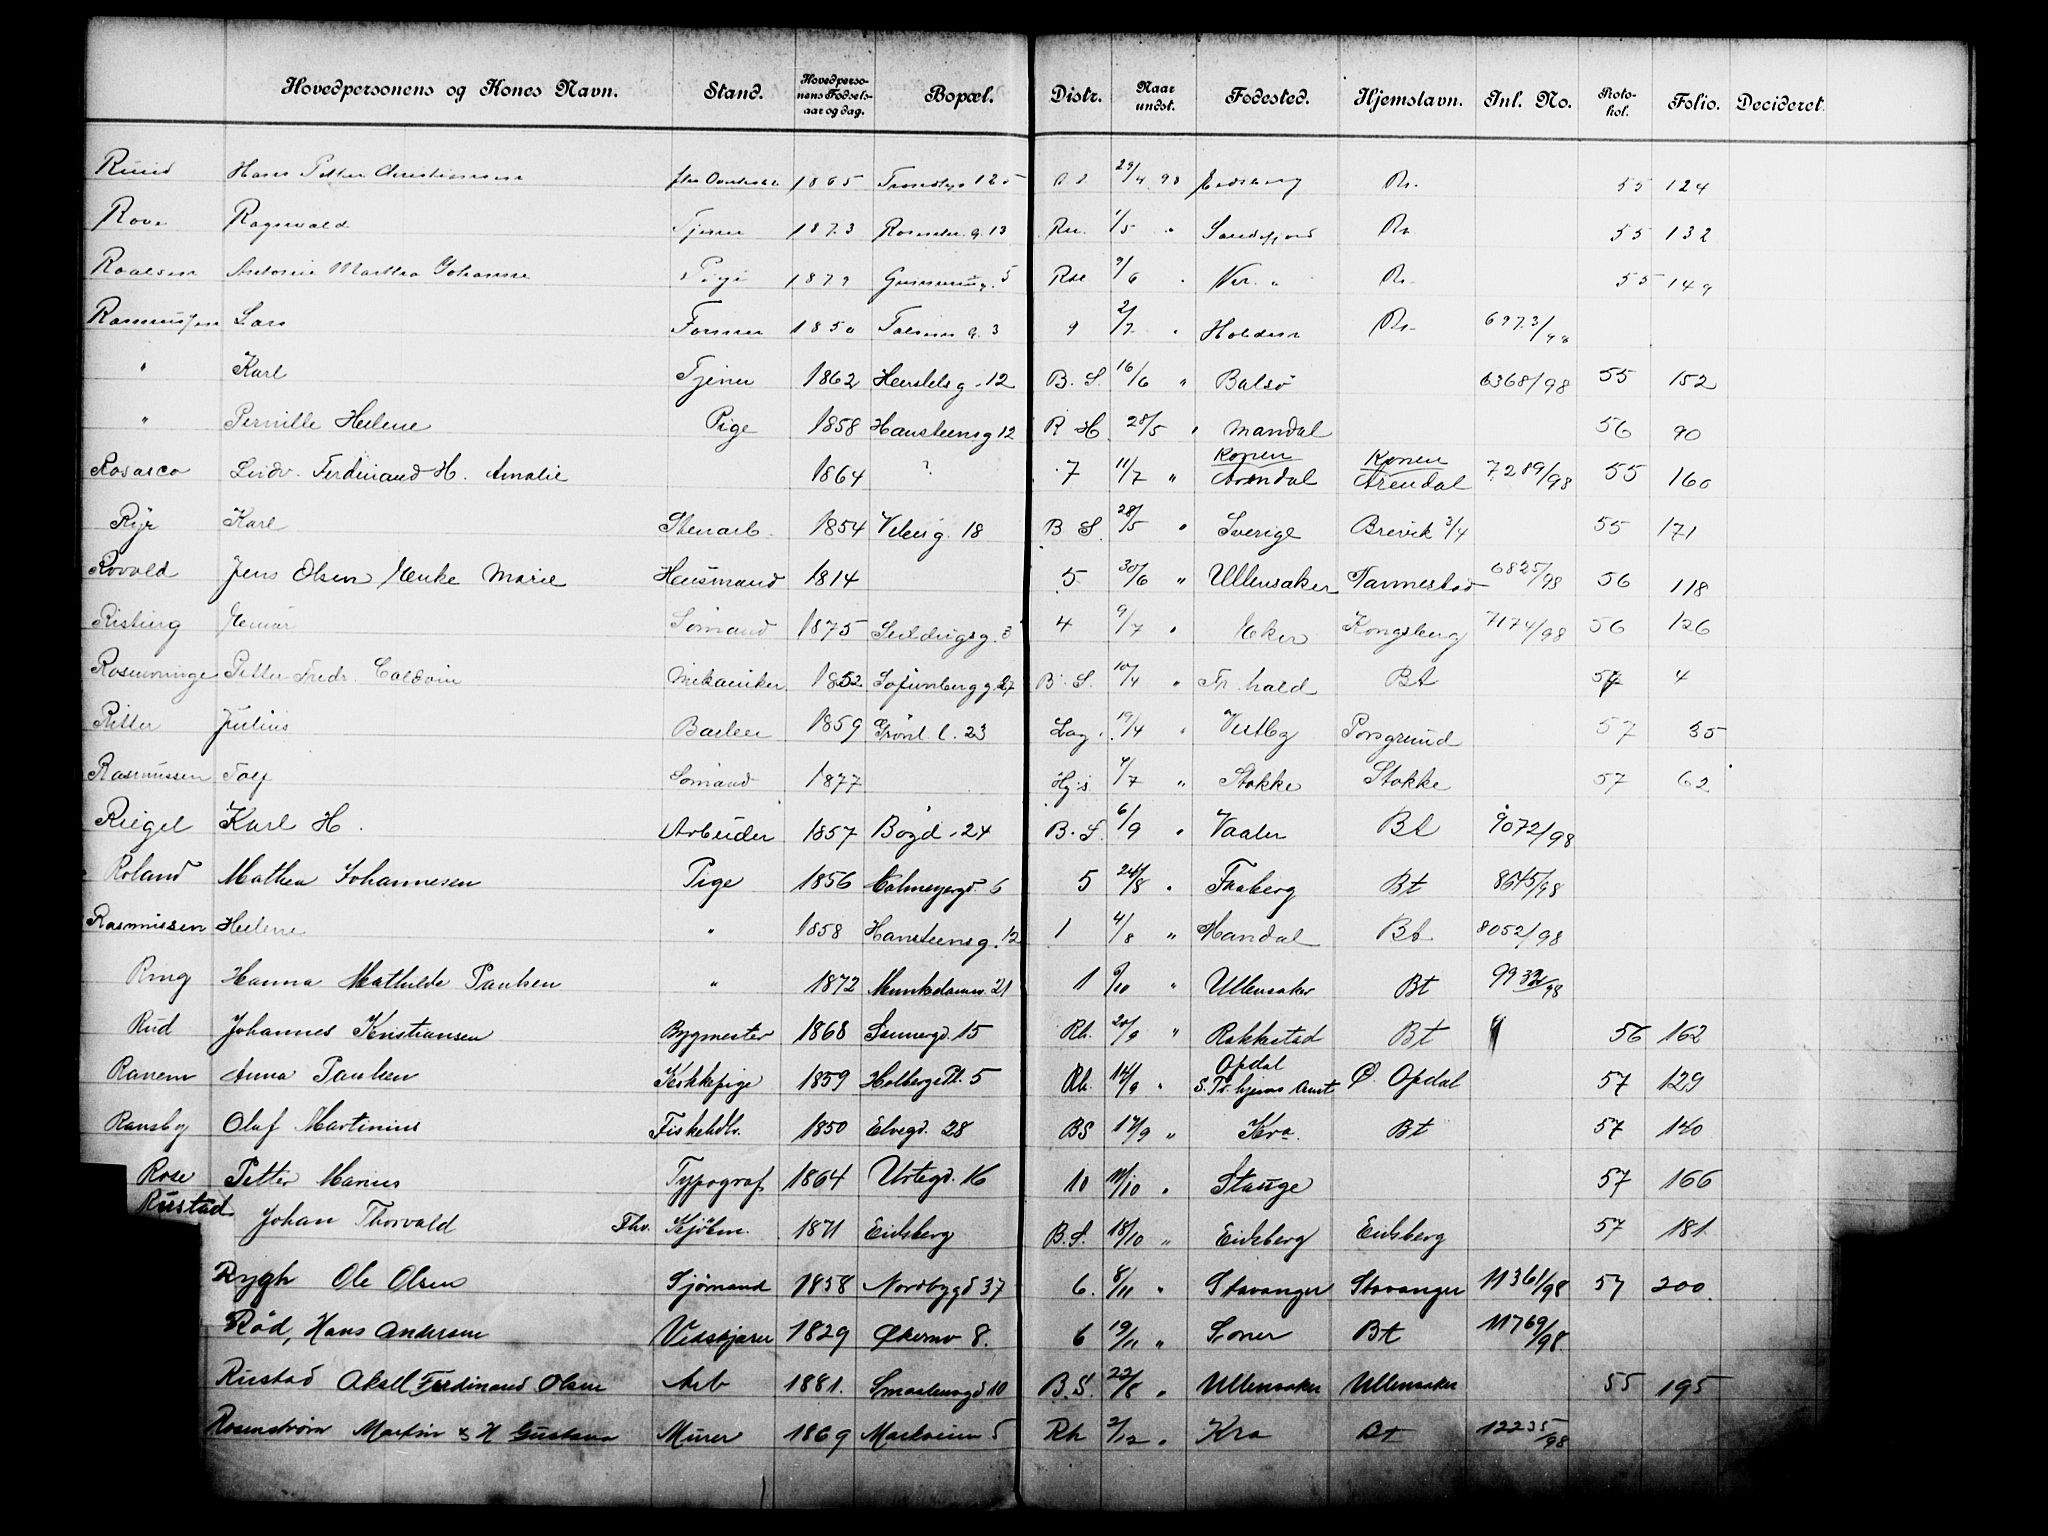 Hovedpersonens og Kones Navn. Stand. Hovedperso-nens Fødsels-aar og dag. Bopæl. Distr. Naar undst. Fødested. Hjemslavn. Inl. No. Proto-kol. Folio. Decideret.
Ruud Hans Petter Christiansen 1865 125 29/4 98 Eidsberg Bt. 55 124
Rove Ragnvald Tjener 1873 Rosenkr. g. 13 Rh. 1/5 " Sandefjord Bt. 55 132
Roalsen Antonie Martha Johanne Pige 1879 5 9/6 " Kr. a 55 149
Rasmussen Lars Former 1850 g. 3 9 2/7 " Holden 6973/98
" Karl Tjener 1862 Herslebs g. 12 B. S. 16/6 " Balsø 6368/98 55 152
" Pernille Helene Pige 1858 Hansteensg 12 R H. 28/5 " Mandal 56 90
Rosasco Ludv. Ferdinand H. Amalie 1864 ? 7 11/7 " Konen Arendal Konen Arendal 7289/98 55 160
Rye Karl Stenarb. 1854 Vibesg. 18 B S. 28/5 " Sverige Brevik 3/4 55 171
Rovold Jens Olsen, Marie Husmand 1814 5 30/6 " Ullensaker 6825/98 56 118
Risberg Sømand 1875 Suldugsg. 3 4 9/7 " Eker Kongsberg 7174/98 56 126
Rosenvinge Petter Fredr. Mekaniker 1852 Sofienberg g. 27 B. S. 10/4 " Fr. hald Bt 57 4
Ritter Julius Barber 1859 Grønl. l. 23 Lag. 19/4 " Vestby Porsgrund 57 35
Rasmussen Sømand 1877 Hjs. 7/7 " Stokke Stokke 57 62
Riegel Karl H. Arbeider 1857 Bogd. 24 B. S. 6/9 " Vaaler Bt 9072/98
Roland Mathea Johannesen Pige 1856 Calmeyergd 6 5 24/8 " Faaberg Bt 8645/98
Rasmussen Helene " 1858 Hansteensg. 12 1 4/8 " Mandal Bt 8052/98
Ring Hanna Mathilde Paulsen " 1872 Munkedamsv. 21 1 6/10 " Ullensaker Bt 9932/98
Rud Johannes Kristiansen Bygmester 1868 Sannergd. 15 Rh. 20/9 " Rakkestad Bt 56 162
Ranem Anna Paulsen Kokkepige 1859 Holbergs Pl. 5 Rh. 14/9 " Opdal S. Tr. hjems Amt Opdal 57 129
Ransby Olaf Martinius Fiskehdlr. 1850 Elvegd. 28 BS 17/9 " Kra. Bt 57 140
Rose Petter Marius Typograf 1864 Urtegd. 16 10 11/10 " Stange 57 166
Rustad Johan Thorvald Fhv. Kjøbm. 1871 Eidsberg B. S. 18/10 " Eidsberg Eidsberg 57 181
Rygh Ole Olsen Sjømand 1858 Nordbygd 37 6. 8/11 " Stavanger Stavanger 11361/98 57 200.
Rød, Hans Andersen Vedskjærer 1829 Økernv 8. 6 19/11 " Soner Bt 11769/98
Rustad Aksel Ferdinand Olsen Arb 1881. Smalensgd 10 B. S. 22/8 " Ullensaker Ullensaker 55 195
Rosenstrøm Martin & H Gustava Murer 1869 Markveien 5 Rh 2/12 " Kra Bt 12235/98